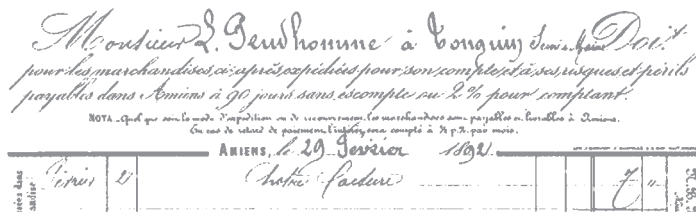 Monsieur L. Prudhomme à Tonquin Seine & Marne Doit
pour les marchandises ci-après expédiées pour son compte et à ses risques et périls
payables dans Amiens à 90 jours sans escompte ou 2% pour comptant.
NOTA _ Quel que soit le mode d'expédition ou de recouvrement, les marchandises sont payables et livrables à Amiens.
En cas de retard de paiement l'intérêt sera compté à ½ p.% par mois.
AMIENS, le 29 Février 1892
Février 2 Notre facture 7 "